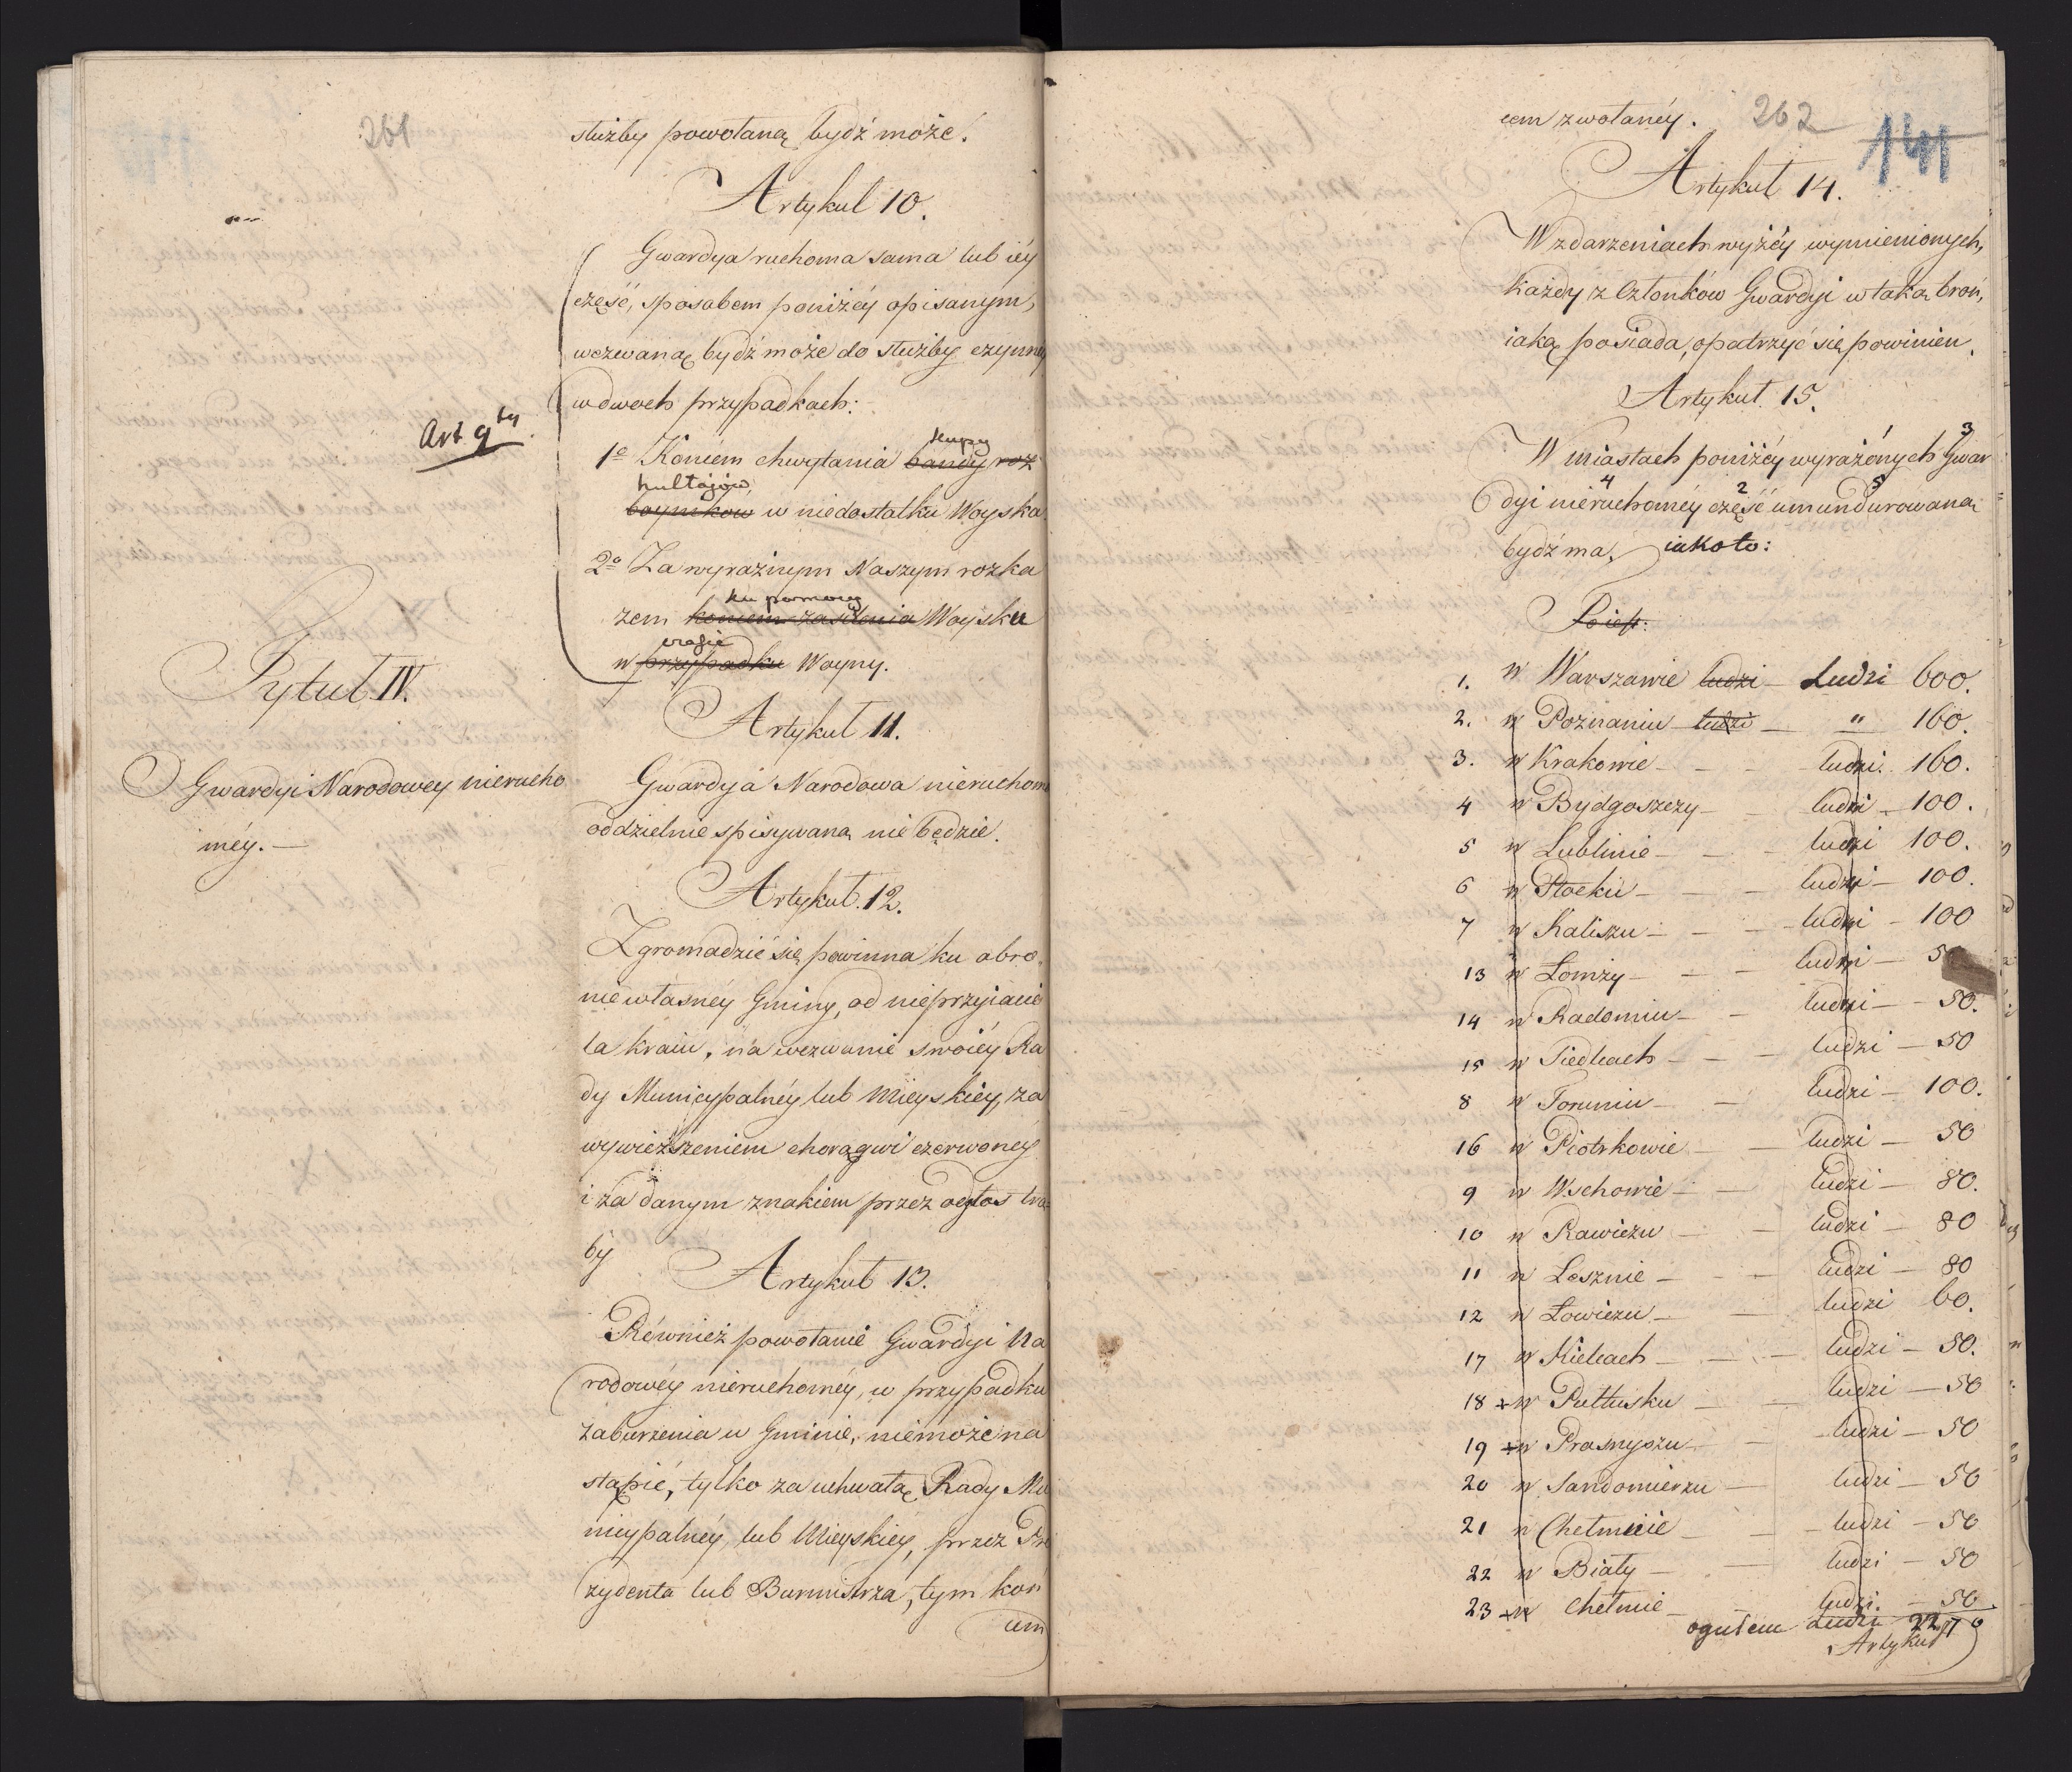 261
służby powołaną bydź może.
Artykuł 10.
Gwardya ruchoma sama lub iéy
część, sposobem poniżéy opisanym,
wezwaną bydź może do służby czynnéy
w dwoch przypadkach:
Art 9ty.
kupy
1e Koniem chwytania bandy roz
hultajów,
boynikow w niedostatku Woyska
2o Za wyraźnym Naszym rozka
ku pomocy
zem koniem zasilenia Woysku
czasie
w przypadku Woyny.
Tytuł IV.
O Gwardyi Narodowey nierucho
méy. —
Artykuł 11.
Gwardya Narodowa nieruchoma
oddzielnie spisywaną nie będzie.
Artykuł. 12.
Zgromadzić się powinna ku obro,
nie własnéy Gminy, od nieprzyiacie
la kraiu, na wezwanie swoiéy Ra
dy Municypalnéy lub Mieyskiéy, za
wywieszeniem chorągwi czerwonéy
i za danym znakiem przez odgłos trą,
by
Artykuł 13.
Również powołanie Gwardyi Na
rodowéy nieruchoméy, w przypadku
zaburzenia w Gminie, nie może na
stąpić, tylko za uchwałą Rady Mu
nicypalnéy lub Mieyskiéy, przez Pre
zydenta lub Burmistrza, tym koń
cem
cem zwołanéy. 262
141
Artykuł 14.
W zdarzeniach wyżéy wymienionych,
każdy z Członków Gwardyi w taką broń,
iaką posiada, opatrzyć się powinien.
Artykuł. 15.
1 3
W miastach poniżéy wyrażonych Gwar
4 2 5
dyi nieruchoméy część umundurowaną
bydź ma, iako to:
1. w Warszawie ludzi — Ludzi 600.
2. w Poznaniu ludzi — " 160.
3. w Krakowie — — ludzi. 160.
4 w Bydgoszczy — ludzi — 100.
5 w Lublinie — — ludzi 100.
6 w Płocku — — ludzi — 100.
7 w Kaliszu — — ludzi — 100
13 w Łomży — — ludzi — 50
14 w Radomiu — — ludzi — 50.
15 w Siedlcach — — ludzi — 50
8 w Toruniu — — ludzi — 100.
16 w Piotrkowie — — ludzi — 50
9 w Wschowie — — ludzi — 80.
10 w Rawiczu — — ludzi — 80
11 w Lesznie — — ludzi — 80
12 w Łowiczu — — ludzi 60.
17 w Kielcach — — ludzi — 50.
18 + w Pułtusku — — ludzi — 50
19 + w Prasnyszu — — ludzi — 50
20 w Sandomierzu — ludzi — 50
21 w Chełmnie — — ludzi — 50
22 w Biały — — ludzi — 50
23 + w Chełmie — ludzi. — 50.
ogułem Ludzi 2270
Artykuł